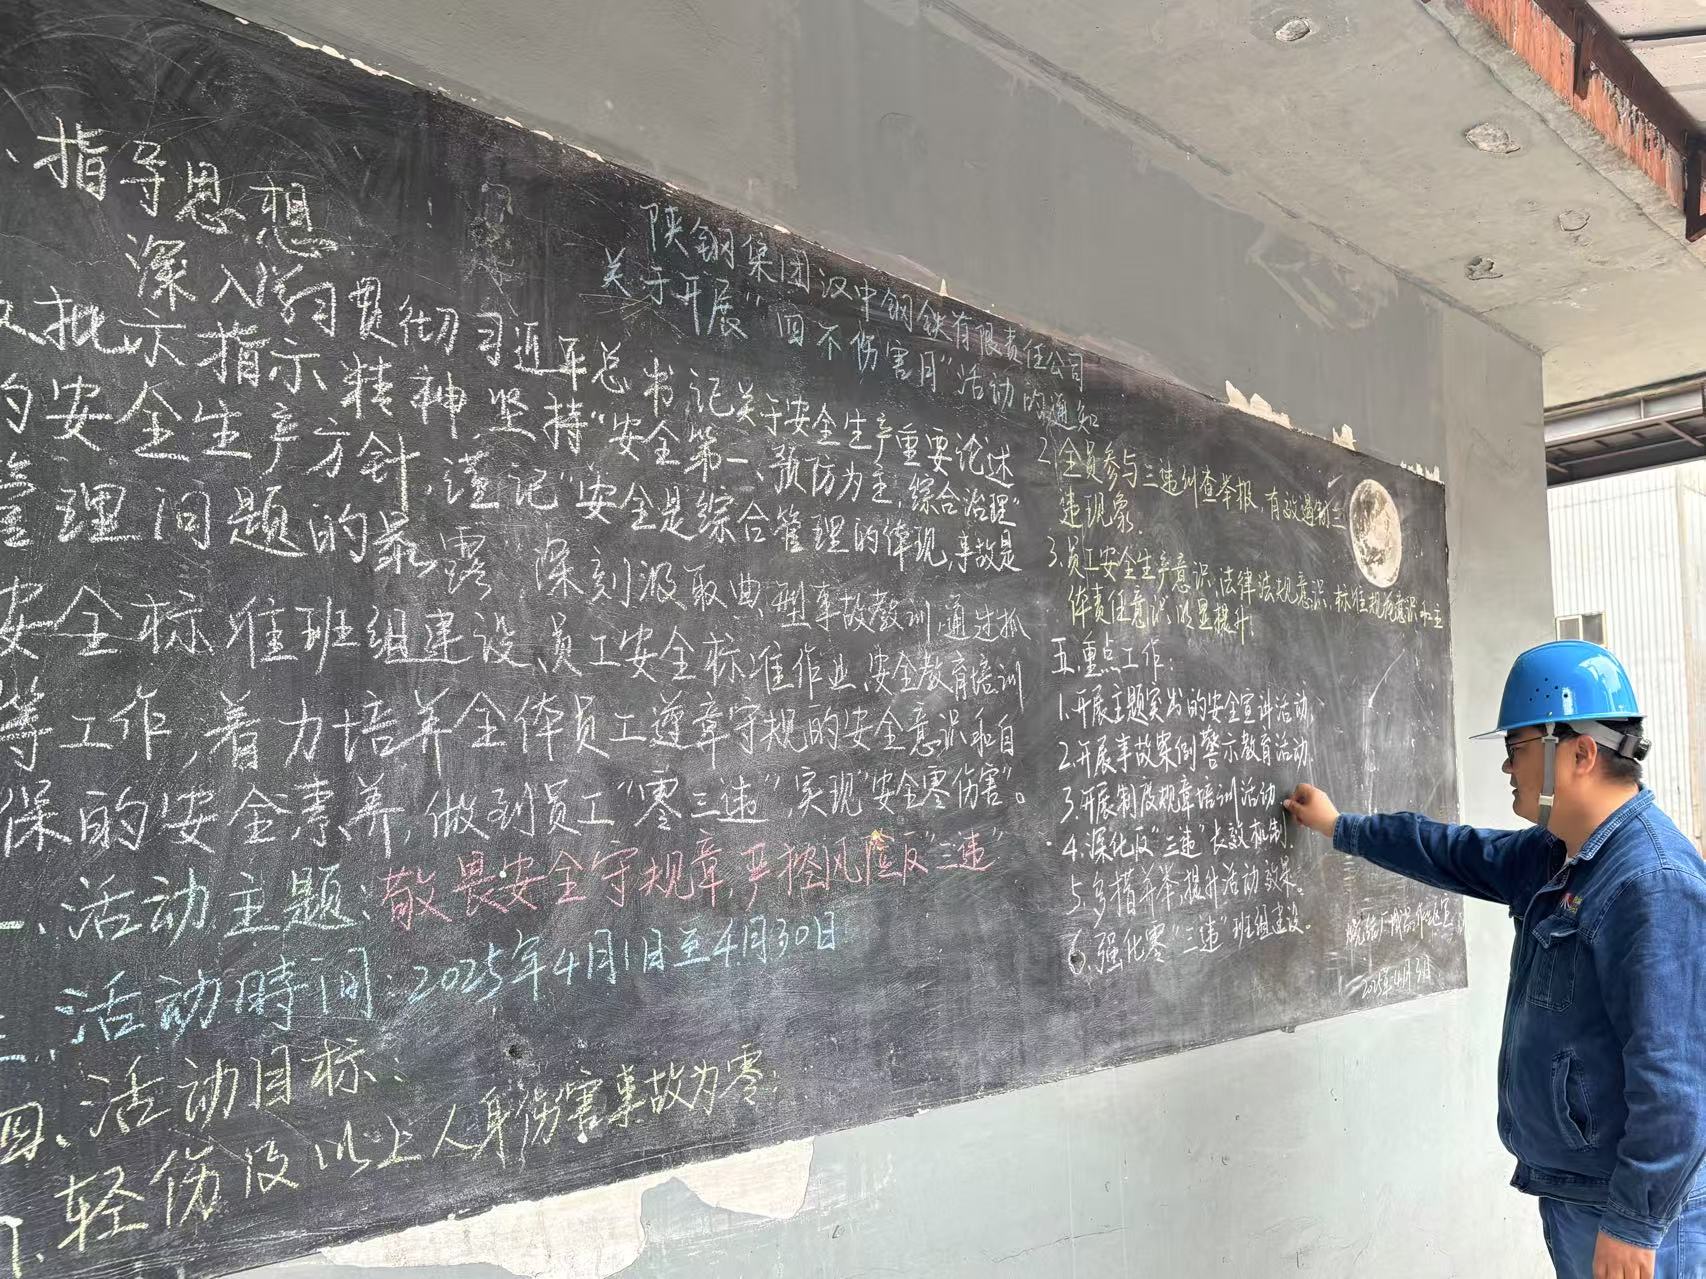 陕钢集团汉中钢铁有限责任公司
关于开展“四不伤害月”活动的通知
、指导思想
深入学习贯彻习近平总书记关于安全生产重要论述
批示指示精神坚持“安全第一、预防为主,综合治理”
的安全生产方针,谨记“安全是综合管理的体现,事故是
管理问题的暴露”深刻汲取典型事故教训,通过抓
安全标准班组建设、员工安全标准作业、安全教育培训
等工作,着力培养全体员工遵章守规的安全意识和自
保的安全素养,做到员工“零三违”,实现“安全零伤害”。
二、活动主题:敬畏安全守规章,严控风险反“三违”
三、活动时间:2025年4月1日至4月30日
四、活动目标:
1、轻伤及以上人身伤害事故为零;
2.全员参与三违纠查举报,有效遏制三
违现象。
3.员工安全生产意识、法律法规意识、标准规范意识和主
体责任意识明显提升。
五、重点工作:
1.开展主题突出的安全宣讲活动;
2.开展事故案例警示教育活动.
3.开展制度规章培训活动
4.深化反“三违”长效机制.
5.多措并举,提升活动效果。
6.强化零“三违”班组建设。
2025年4月3日